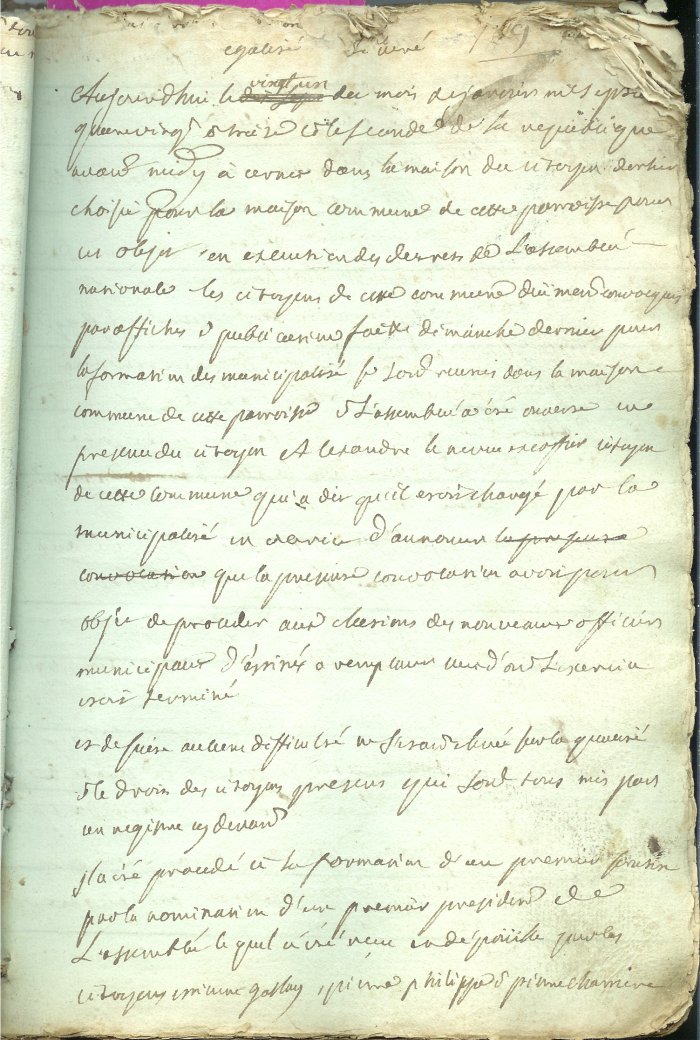 égalité liberté 119
Aujourd'hui le vingt un du mois de janvier mil sept cent
quatrevingt treize et le second de la republique
avant midy à dans la maison du citoyen dernier
choisie pour la maison commune de cette parroisse pour
cet objet en execution des decrets de L'assemblée
nationale les citoyens de cette commune duement convoqués
par affiches & publication faitte dimanche dernier pour
la formation des municipalité se sont reunis dans la maison
commune de cette parroisse & L'assemblée a été ouverte en
presence du citoyen Alexandre citoyen
de cette commune qui a dit qu'il etoit chargé par la
municipalité en exercice d'annoncer la presente
convocation que la presente convocation avoit pour
objet de proceder aux élections des nouveaux officiers
municipaux destinés a remplacer ceux dont L'exercice
etoit terminé
et de suite aucune difficulté ne s'etant élevée sur la qualité
& le droit des citoyens presens qui sont tous mis par
un registre cy devant
Il a été procedé à la formation d'un premier scrutin
par la nomination d'un premier president de
L'assemblée lequel a été recu et dépouillé par les
citoyens etienne , pierre philippe & pierre